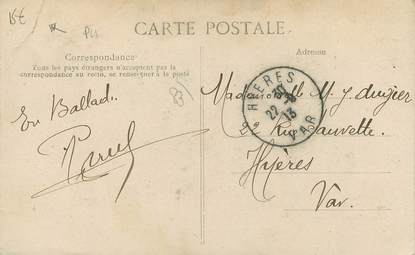 15€
CARTE POSTALE
Correspondance
Tous les pays étrangers n'acceptent pas la
correspondance au recto, se renseigner à la poste
Adresse
En Ballad..
HYERES
22
13
VAR
Mademoiselle M. J.
22 Rue
Hyères
Var.